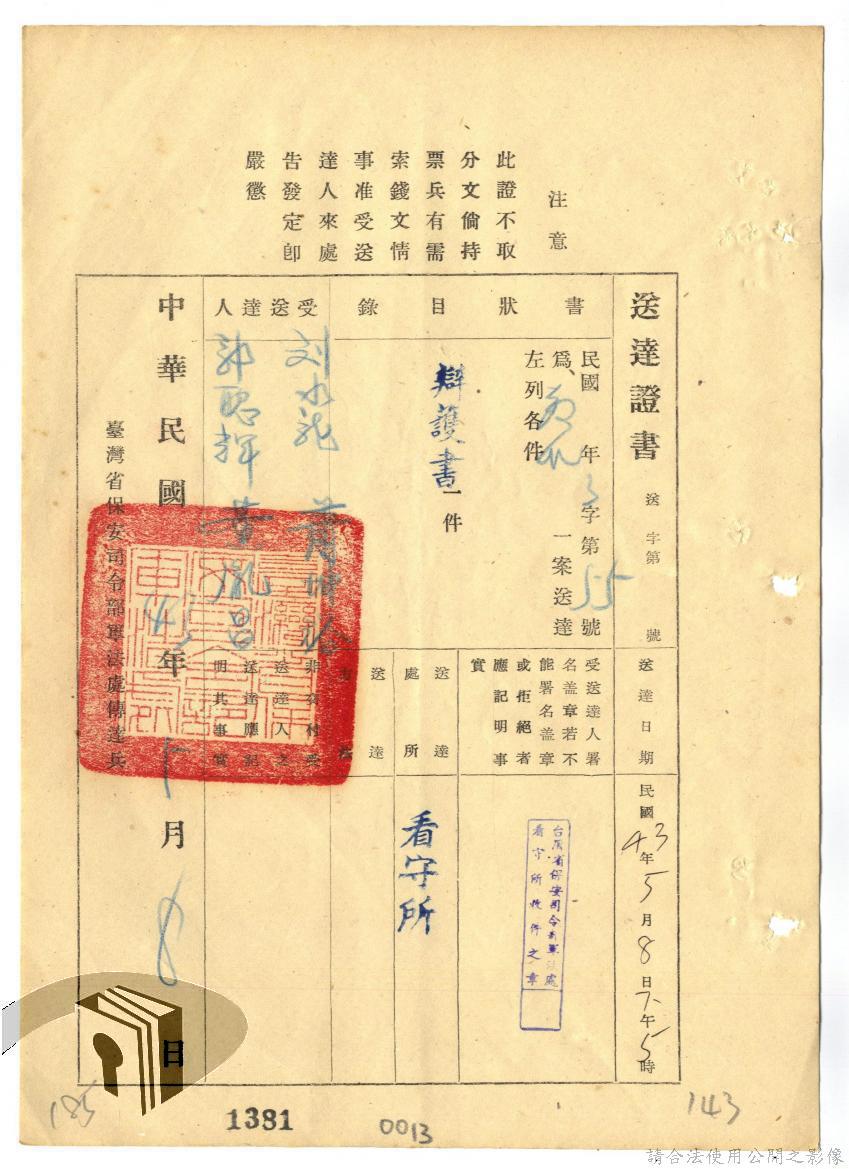 注意
此證不取
分文倘持
票兵有需
索錢文情
事准受送
達人來處
告發定卽
嚴懲
送達證書
送字第號
送達日期
民國43年5月8日下午5時
書狀目錄
民國年字第55號
爲、一案送達
左列各件
辯護書一件
受送達人署
名盖章若不
能署名盖章
或拒絕者
應記明事
實
台灣省保安司令部軍法處
看守所收件之章
送達
處所
看守所
送達
受送達人
刘水龍
郭聰輝 葉胤昌
非交付受
送達人之
送達應記
明其事實
中華民國43年5月8日
臺灣省保安司令部軍法處傳達兵
185
1381
0013
143
請合法使用公開之影像